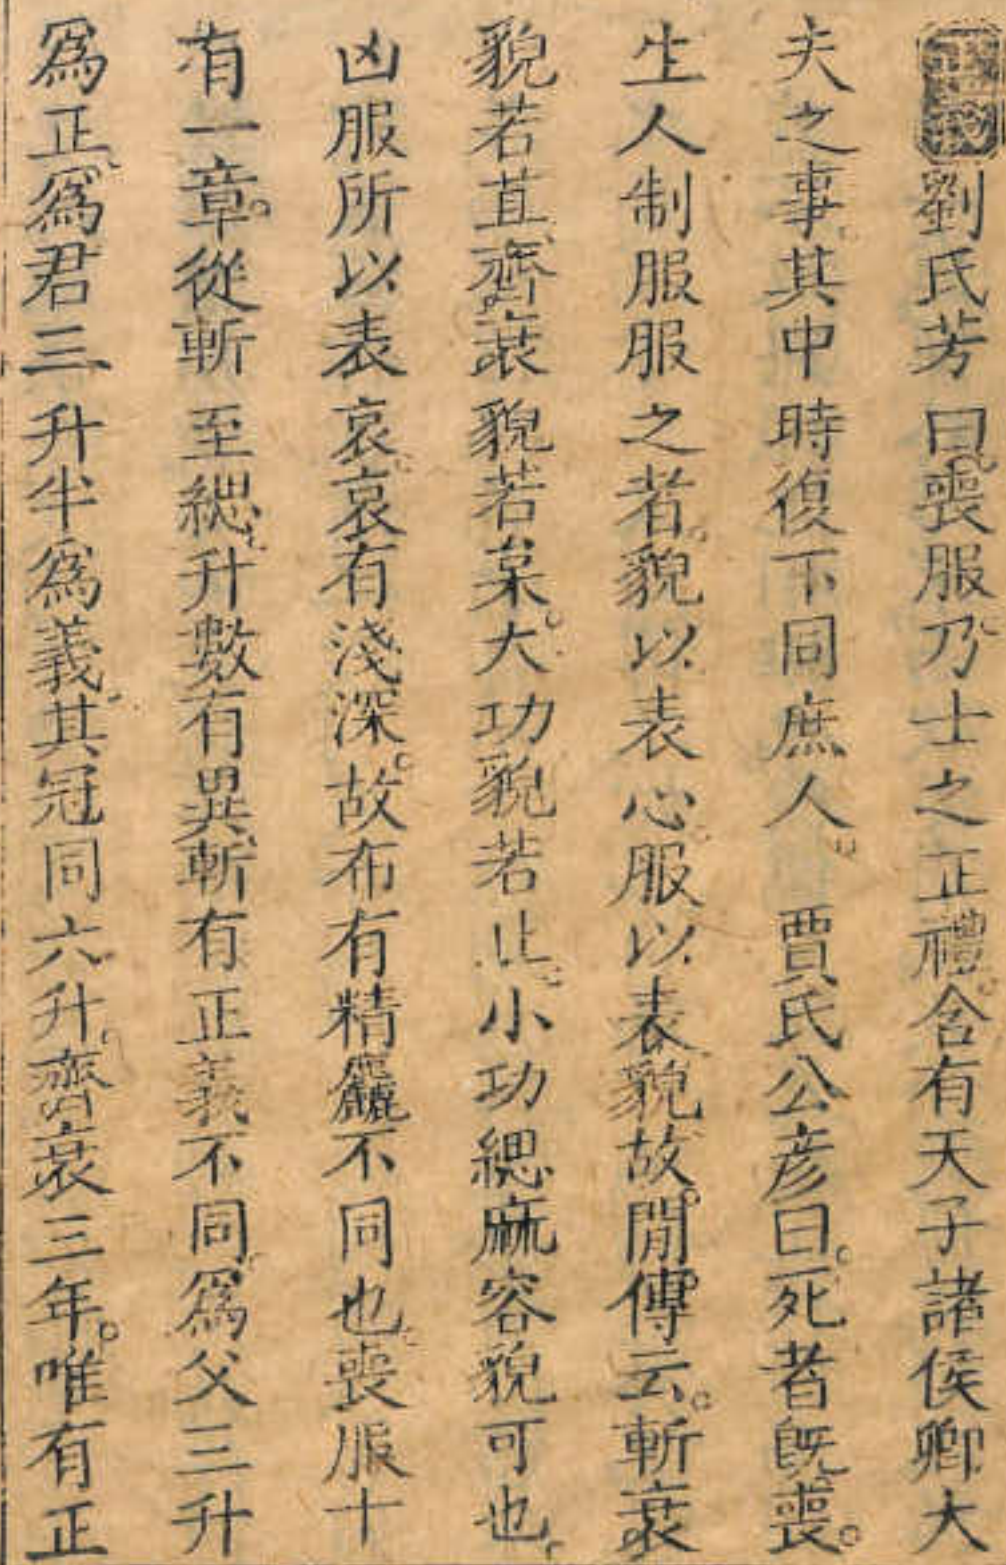 劉氏芳曰喪服乃士之正禮含有天子諸侯卿大
夫之事其中時復下同庶人　賈氏公彦曰死者旣喪
生人制服服之者貌以表心服以表貌故閒傳云斬衰
貌若苴齊衰貌若枲大功貌若止小功緦麻容貌可也
凶服所以表哀哀有淺深故布有精麤不同也喪服十
有一章從斬至緦升數有異斬有正義不同爲父三升
爲正爲君三升半爲義其冠同六升齊衰三年唯有正